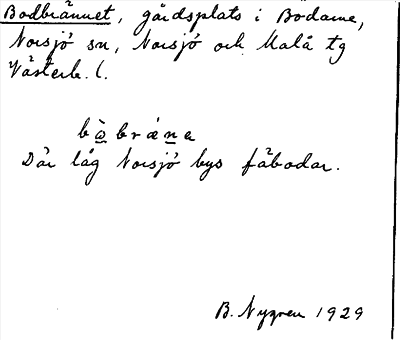 Bodbrännet, gårdsplats i Bodarne,
Norsjö sn, Norsjö och Malå tg
Västerb. l.
bὼbræ̀ne
Där låg Norsjö bys fäbodar.
B. Nygren 1929